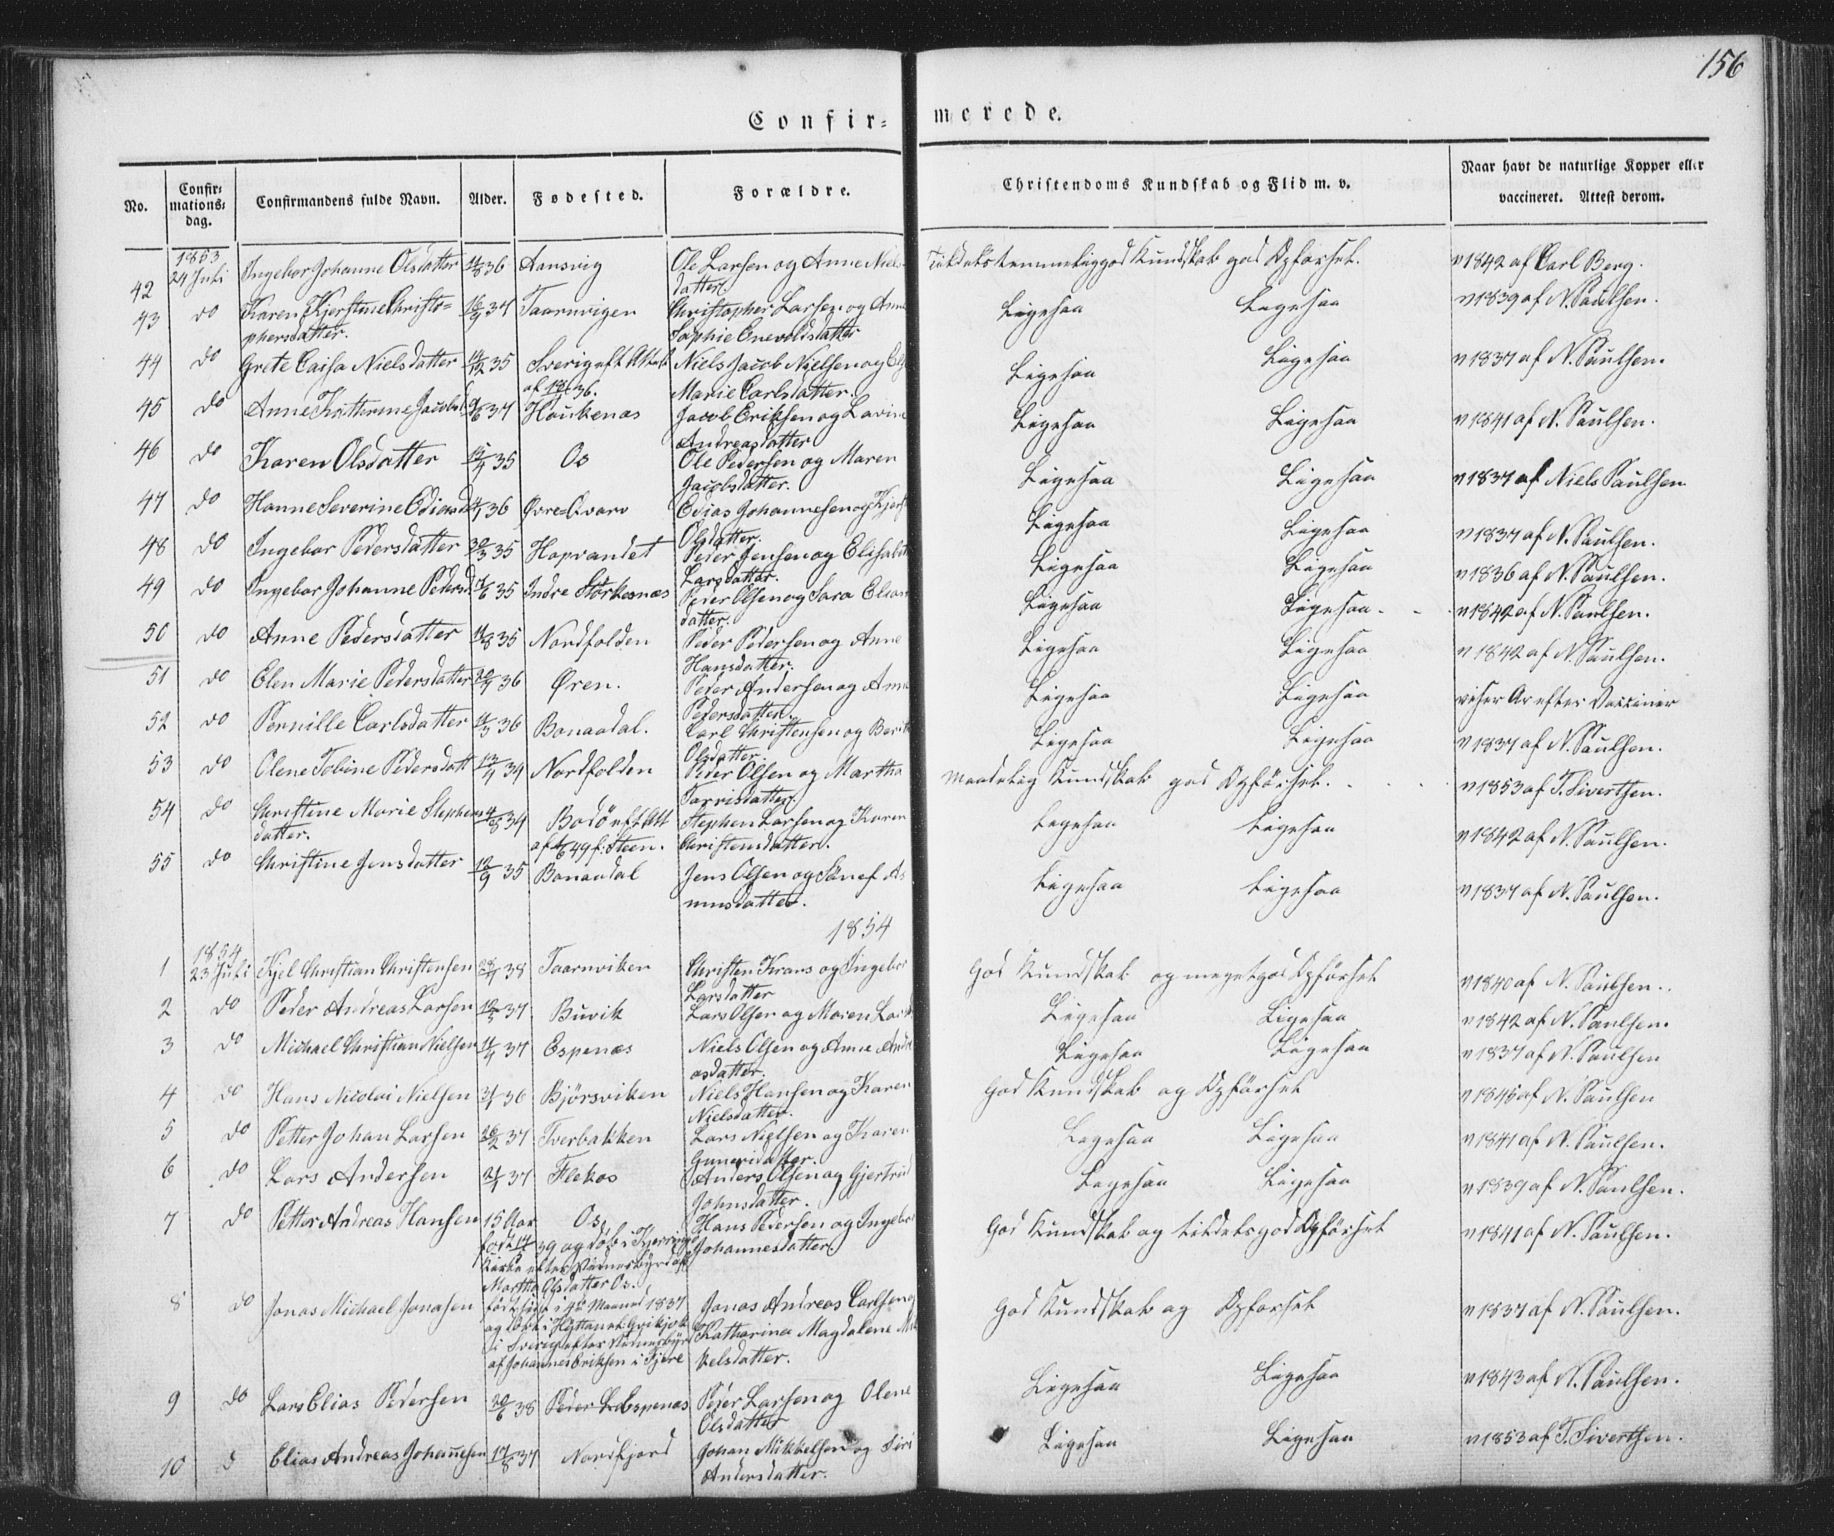 156
Confirmerede.
No.
Confirmationsdag.
Confirmandens fulde Navn.
Alder.
Fødested.
Forældre.
Christendoms Kundskab og Flid m. v.
Naar havt de naturlige Kopper eller vaccineret. Attest derom.
1853
42 24 Juli Ingebor Johanne Olsdatter 36 Aansvig Ole Larsen og Anne Nielsdatter god Kundskab god Opførsel. v 1842 af Carl Berg.
43 do Karen Kjerstine Christophersdatter. 34 Taarnvigen Christopher Larsen og Anne Sophie Enevoldsdatter Ligesaa Ligesaa v 1839 af N. Paulsen.
44 do Grete Caisa Nielsdatter 35 Sverig eft Attest af 36. Niels Jacob Nielsen og Marie Carlsdatter. Ligesaa Ligesaa v 1837 af N. Paulsen.
45 do Anne Kathrine Jacobsd 37 Haukenæs Jacob Eriksen og Lavine Andreasdatter Ligesaa Ligesaa v 1841 af N. Paulsen.
46 do Karen Olsdatter 35 Os Ole Pedersen og Maren Jacobsdatter. Ligesaa Ligesaa v 1837 af Niels Paulsen
47 do Hanne Severine 36 Øvre-Qvarv Edias Johannesen og Olsdatter. Ligesaa Ligesaa v 1837 af N. Paulsen.
48 do Ingebor Pedersdatter 35 Hopvandet Peder Jensen og Elisabet Larsdatter. Ligesaa Ligesaa v 1836 af N. Paulsen.
49 do Ingebor Johanne Pedersd 35 Indre Størkesnæs Peder Olsen og Sara datter. Ligesaa Ligesaa v 1842 af N. Paulsen.
50 do Anne Pedersdatter 35 Nordfolden Peder Pedersen og Anne Hansdatter. Ligesaa Ligesaa v 1842 af N. Paulsen.
51 do Elen Marie Pedersdatter 36 Øren. Peder Andersen og Anne Pedersdatter. Ligesaa Ligesaa viser Ar efter Vacciner
52 do Pernille Carlsdatter 36 Bonaadal. Carl Christensen og Berit Olsdatter. Ligesaa Ligesaa v 1837 af N. Paulsen.
53 do Olene Tobine Pedersdatt 34 Nordfolden Peder Olsen og Martha datter. Maadelig Kundskab god Opførsel. v 1853 af T. Sivertsen.
54 do Christine Marie Stephensdatter. 34 Bodö eft Att af 49 f: Steen. Stephen Larsen og Karen Christensdatter. Ligesaa Ligesaa v 1842 af N. Paulsen.
55 do Christine Jensdatter 35 Bonaadal Jens Olsen og datter. Ligesaa Ligesaa v 1837 af N. Paulsen.
1854
1854
1 23 Juli Kjel Christian Christensen 38 Taarnviken Christen Krans og Ingebor Larsdatter God Kundskab og meget god Opförsel v 1840 af N. Paulsen.
2 do Peder Andreas Larsen 37 Buvik Lars Olsen og Maren Ligesaa Ligesaa v 1842 af N. Paulsen.
3 do Michael Christian Nielsen 37 Espenæs Niels Olsen og Anne Andreasdatter. Ligesaa Ligesaa v 1837 af N. Paulsen
4 do Hans Nicolai Nielsen 36 Bjørsviken Niels Hansen og Karen Nielsdatter. God Kundskab og Opförsel v 1845 af N. Paulsen
5 do Petter Johan Larsen 37 Tverbakken Lars Nielsen og Karen datter. Ligesaa Ligesaa v 1841 af N. Paulsen.
6 do Lars Andersen 37 Flekos Anders Olsen og Gjertrud Johnsdatter. Ligesaa Ligesaa v 1839 af N. Paulsen.
7 do Petter Andreas Hansen 15 Aar Os Hans Pedersen og Ingebor Johannesdatter. God Kundskab og tildels god Opförsel v 1841 af N. Paulsen.
født 39 og døb i Kjerringø Kirke efter Vidnesbyrd af Martha Olsdatter Os.
8 do Jonas Michael Jonasen født i 4de Maaned 1837 og døbt i i Sverig efter Vidnesbyr af Johannes Eriksen i Tjere Jonas Andreas Carlsen og Katharina Magdalene Mikkelsdatter. God Kundskab og Opførsel v 1837 af N. Paulsen.
9 do Lars Elias Pedersen 38 Espenæs Peder Larsen og Olene Olsdatter Ligesaa Ligesaa v 1843 af N. Paulsen.
10 d Elias Andreas Johannesen 37 Nordfjord Johan Mikkelsen og Siri Andersdatter. Ligesaa Ligesaa v 1853 af T. Sivertsen.